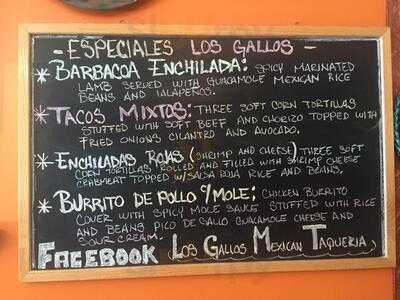 - ESPECIALES LOS GALLOS -
* BARBACOA ENCHILADA: SPICY MARINATED
LAMB SERVED WITH GUACAMOLE MEXICAN RICE
BEANS AND JALAPEÑOS.
* TACOS MIXTOS: THREE SOFT CORN TORTILLAS
STUFFED WITH SOFT BEEF AND CHORIZO TOPPED WITH
FRIED ONIONS CILANTRO AND AVOCADO.
* ENCHILADAS ROJAS (SHRIMP AND CHEESE) THREE SOFT
CORN TORTILLAS ROLLED AND FILLED WITH SHRIMP CHEESE
CRABMEAT TOPPED W/SALSA ROJA RICE AND BEANS.
* BURRITO DE POLLO C/MOLE: CHICKEN BURRITO
COVER WITH SPICY MOLE SAUCE STUFFED WITH RICE
AND BEANS PICO DE GALLO GUACAMOLE CHEESE AND
SOUR CREAM.
FACEBOOK (LOS GALLOS MEXICAN TAQUERIA)